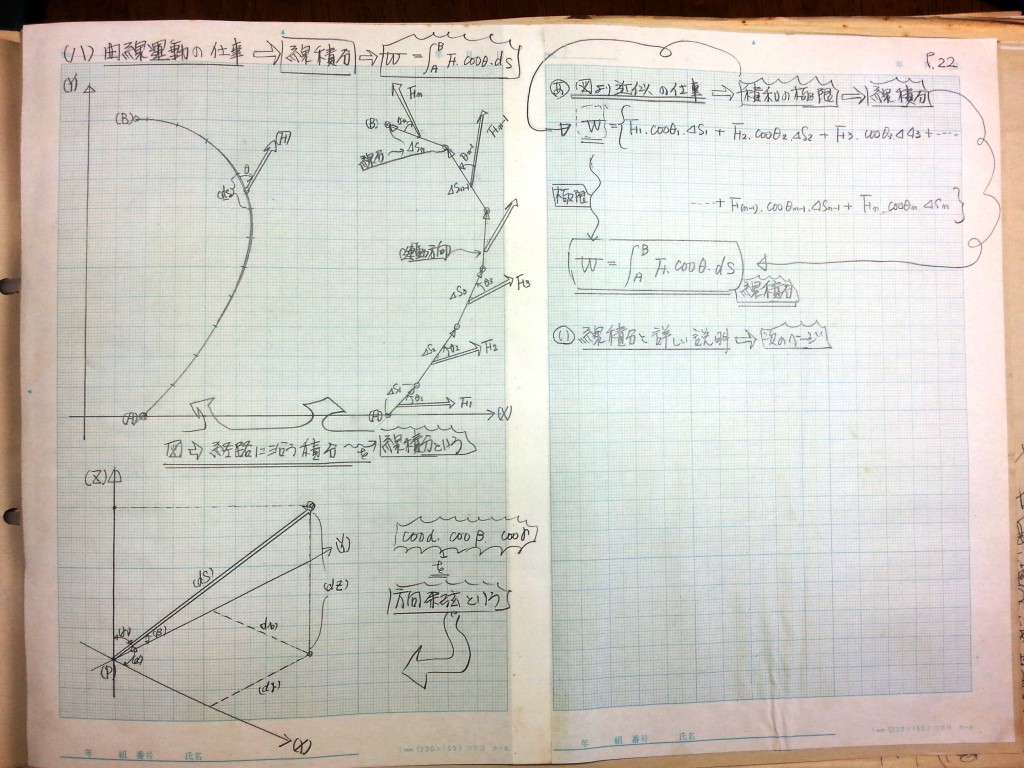 (ハ) 曲線運動の仕事 ⇨ 線積分 → W = ∫_A^B F. cosθ. ds
(Y)
(B)
(F)
θ
(ds)
(A)
Fn
(B)
θn
ΔSn
線分
Fn-1
θn-1
ΔSn-1
運動方向
ΔS3
θ3
F3
ΔS2
θ2
F2
ΔS1
θ1
F1
(A)
(X)
図 ⇨ 経路に沿う積分 〜を 線積分という
(Z)
(ds)
(Y)
(dz)
(γ)
(β)
(α)
(P)
(X)
cosα. cosβ. cosγ
を
方向余弦という
年 組 番号 氏名
P.22
(あ) 図より近似の仕事 ⇨ 積和の極限 ⇨ 線積分
W = {F1. cosθ1. ΔS1 + F2. cosθ2. ΔS2 + F3. cosθ3. ΔS3 + ‥‥
‥‥ + F(n-1). cosθn-1. ΔSn-1 + Fn. cosθn. ΔSn}
極限
W = ∫_A^B F. cosθ. ds
線積分
(い) 線積分と詳しい説明 ⇨ 次のページ
年 組 番号 氏名